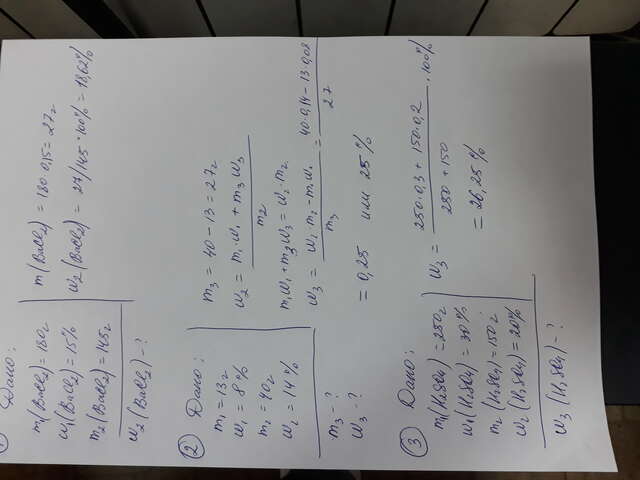 1 Дано:
m₁(BaCl₂) = 180г
w₁(BaCl₂) = 15%
m₂(BaCl₂) = 145г
w₂(BaCl₂) - ?
m(BaCl₂) = 180·0,15 = 27г
w₂(BaCl₂) = 27/145 · 100% = 18,62%
2 Дано:
m₁ = 13г
w₁ = 8%
m₂ = 40г
w₂ = 14%
m₃ - ?
w₃ - ?
m₃ = 40 - 13 = 27г
w₂ = m₁·w₁ + m₃w₃ / m₂
m₁w₁ + m₃w₃ = w₂·m₂
w₃ = w₂·m₂ - m₁w₁ / m₃ = 40·0,14 - 13·0,08 / 27
= 0,25 или 25%
3 Дано:
m₁(H₂SO₄) = 250г
w₁(H₂SO₄) = 30%
m₂(H₂SO₄) = 150г
w₂(H₂SO₄) = 20%
w₃(H₂SO₄) - ?
w₃ = 250·0,3 + 150·0,2 / 250 + 150 · 100%
= 26,25%